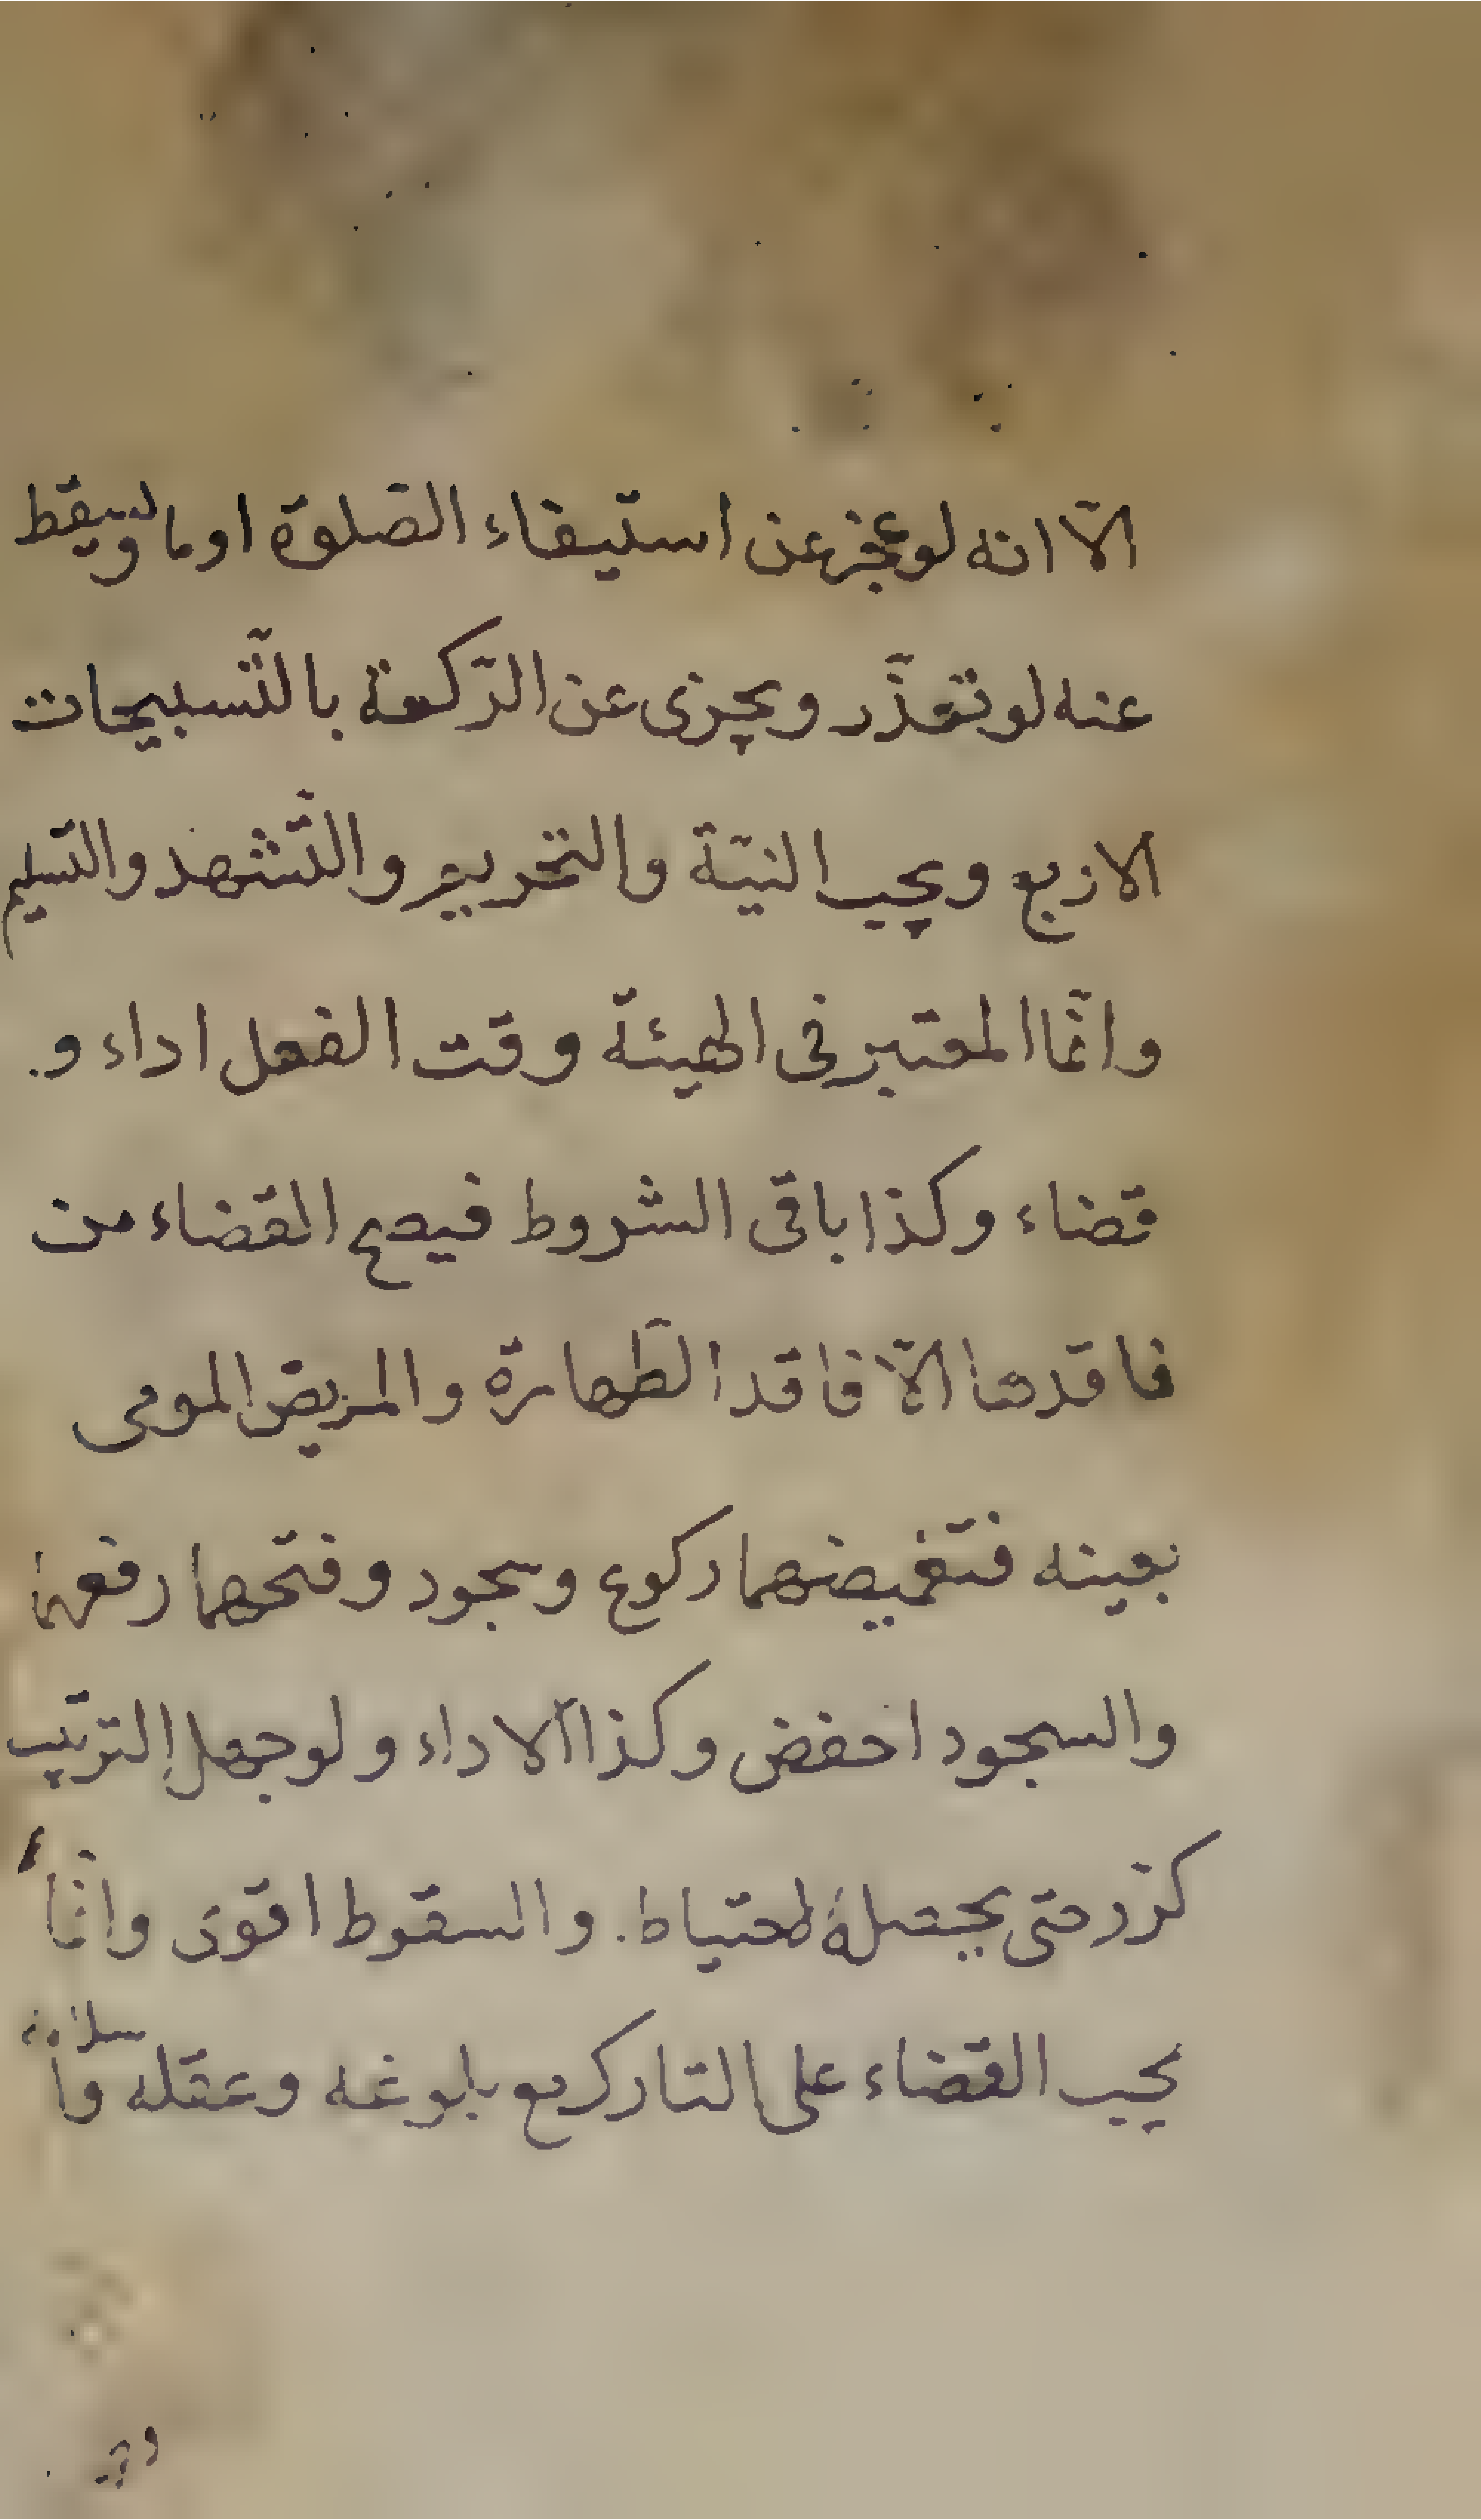 الّا انه لو عجز عن استيفاء الصّلوة اوما ويسقط
عنه لو تعذّر ويجزى عن الرّكعة بالتّسبيحات
الاربع ويجب النيّة والتحريم والتّشهد والتسليم
وانّما المعتبر فى الهيئة وقت الفعل اداء و
قضاء وكذا باقى الشروط فيصح القضاء من
فاقدها الّا فاقد الطّهارة والمريض المومى
بعينه فتغميضهما ركوع وسجود وفتحهما رفعهما
والسجود اخفض وكذا الاداء ولو جهل الترتيب
كرّر حتى يحصله احتياط. والسقوط اقوى وانّما
يجب القضاء على التارك مع بلوغه وعقله